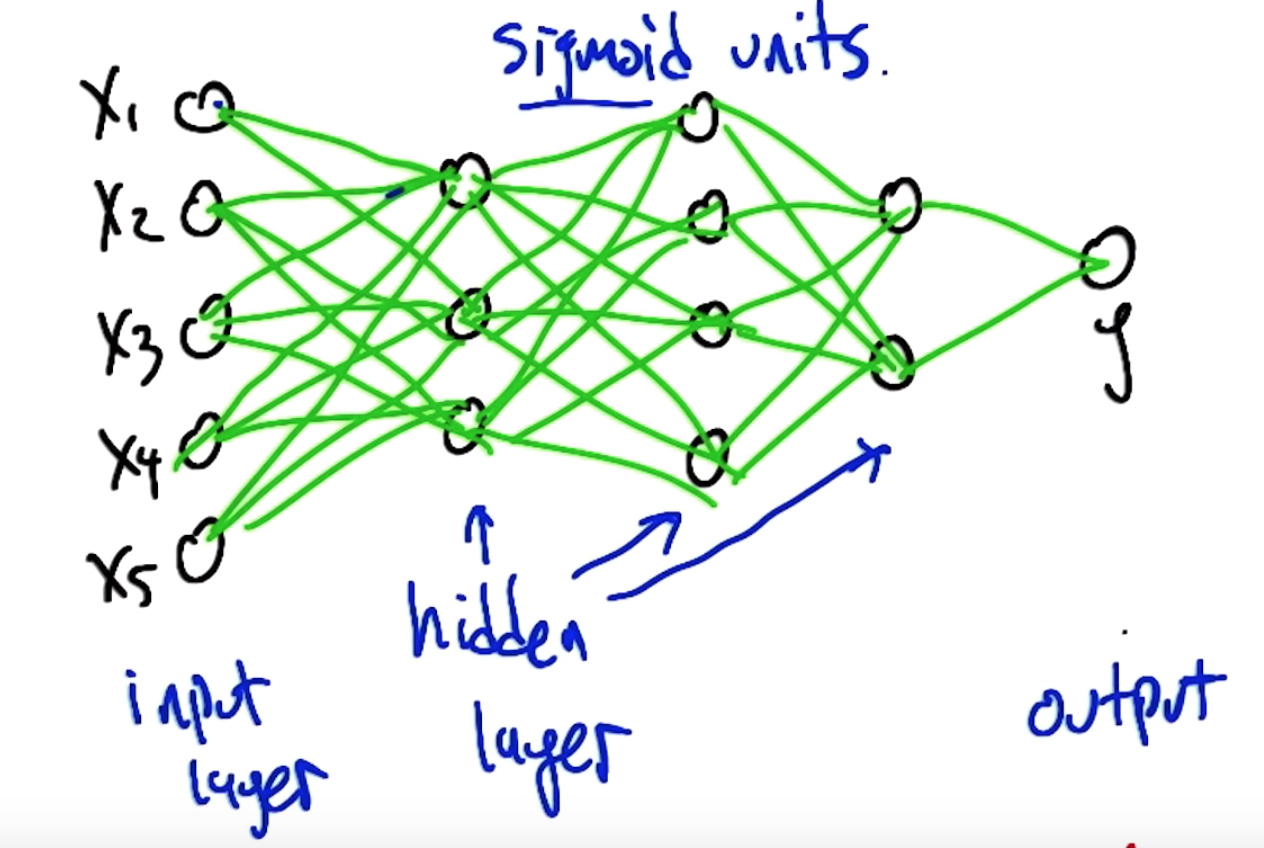 sigmoid units.
X1
X2
X3
X4
X5
y
hidden
layer
input
layer
output